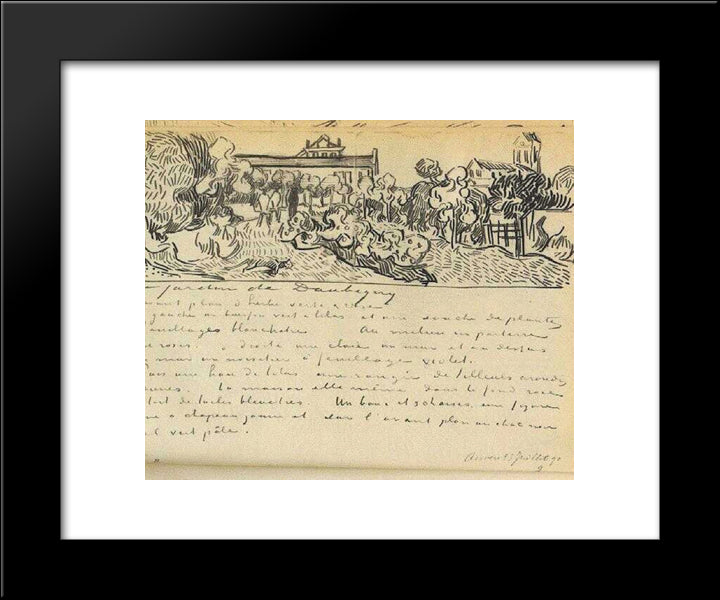 jardin de Daubigny
avant plan d'herbe verte & rose
gauche un buisson vert & lilas et une souche de plantes
feuillages blanchatres Au milieu un parterre
de roses. à droite une claie un mur et au dessus
mur un noisetier à feuillage violet.
puis une haie de lilas une rangée de tilleuls arrondis
jaunes. la maison elle même dans le fond rose
toit de tuiles bleuâtres. Un banc et 3 chaises, une figure
à chapeau jaune et sur l'avant plan un chat noir
ciel vert pâle.